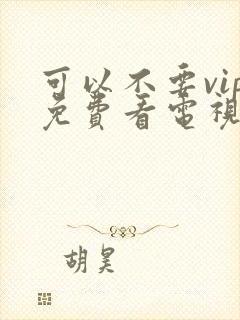 可以不要vip
免費看電視
胡昊